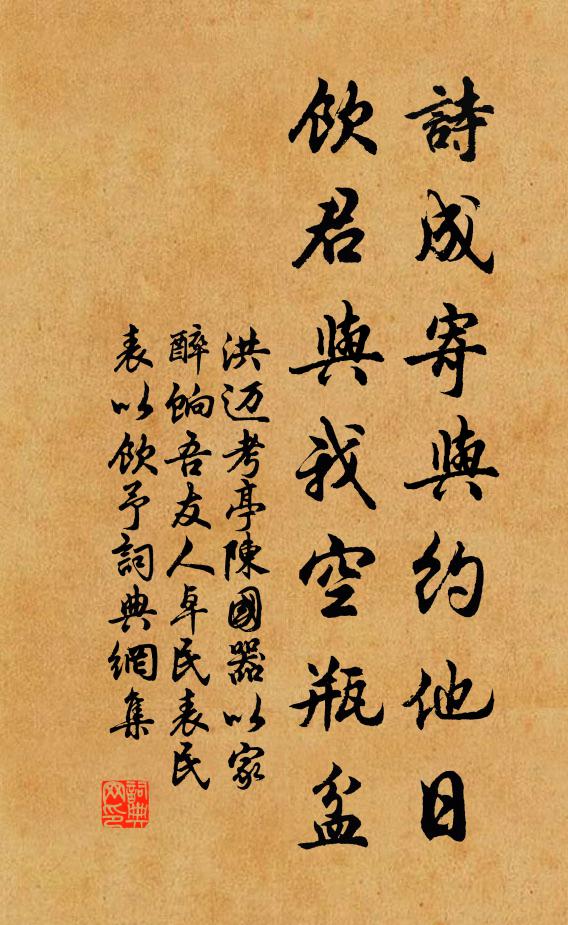 詩成寄與約他日
飲君與我空瓶盆
洪迈考亭陳國器以家
醉餉吾友人卓民表民
表以飲予詞典網集
詞典網印